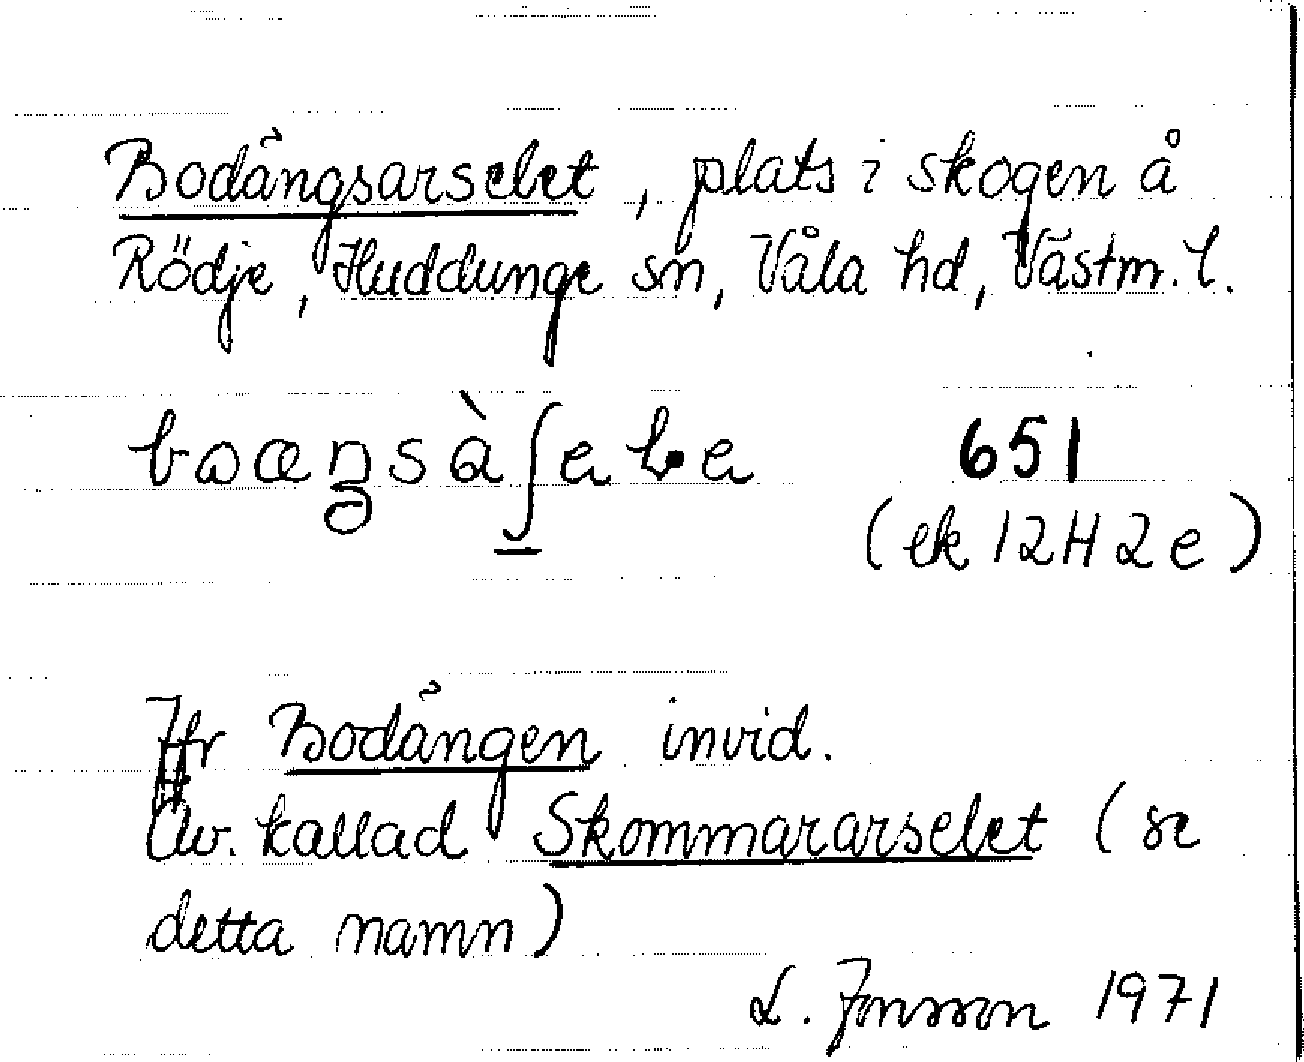 Bodängsarselet, plats i skogen å
Rödje, Huddunge sn, Våla hd, Västm. l.
651
(ek 12H 2e)
Jfr Bodängen invid.
Äv. kallad Skommararselet (se
detta namn)
L. Jonsson 1971